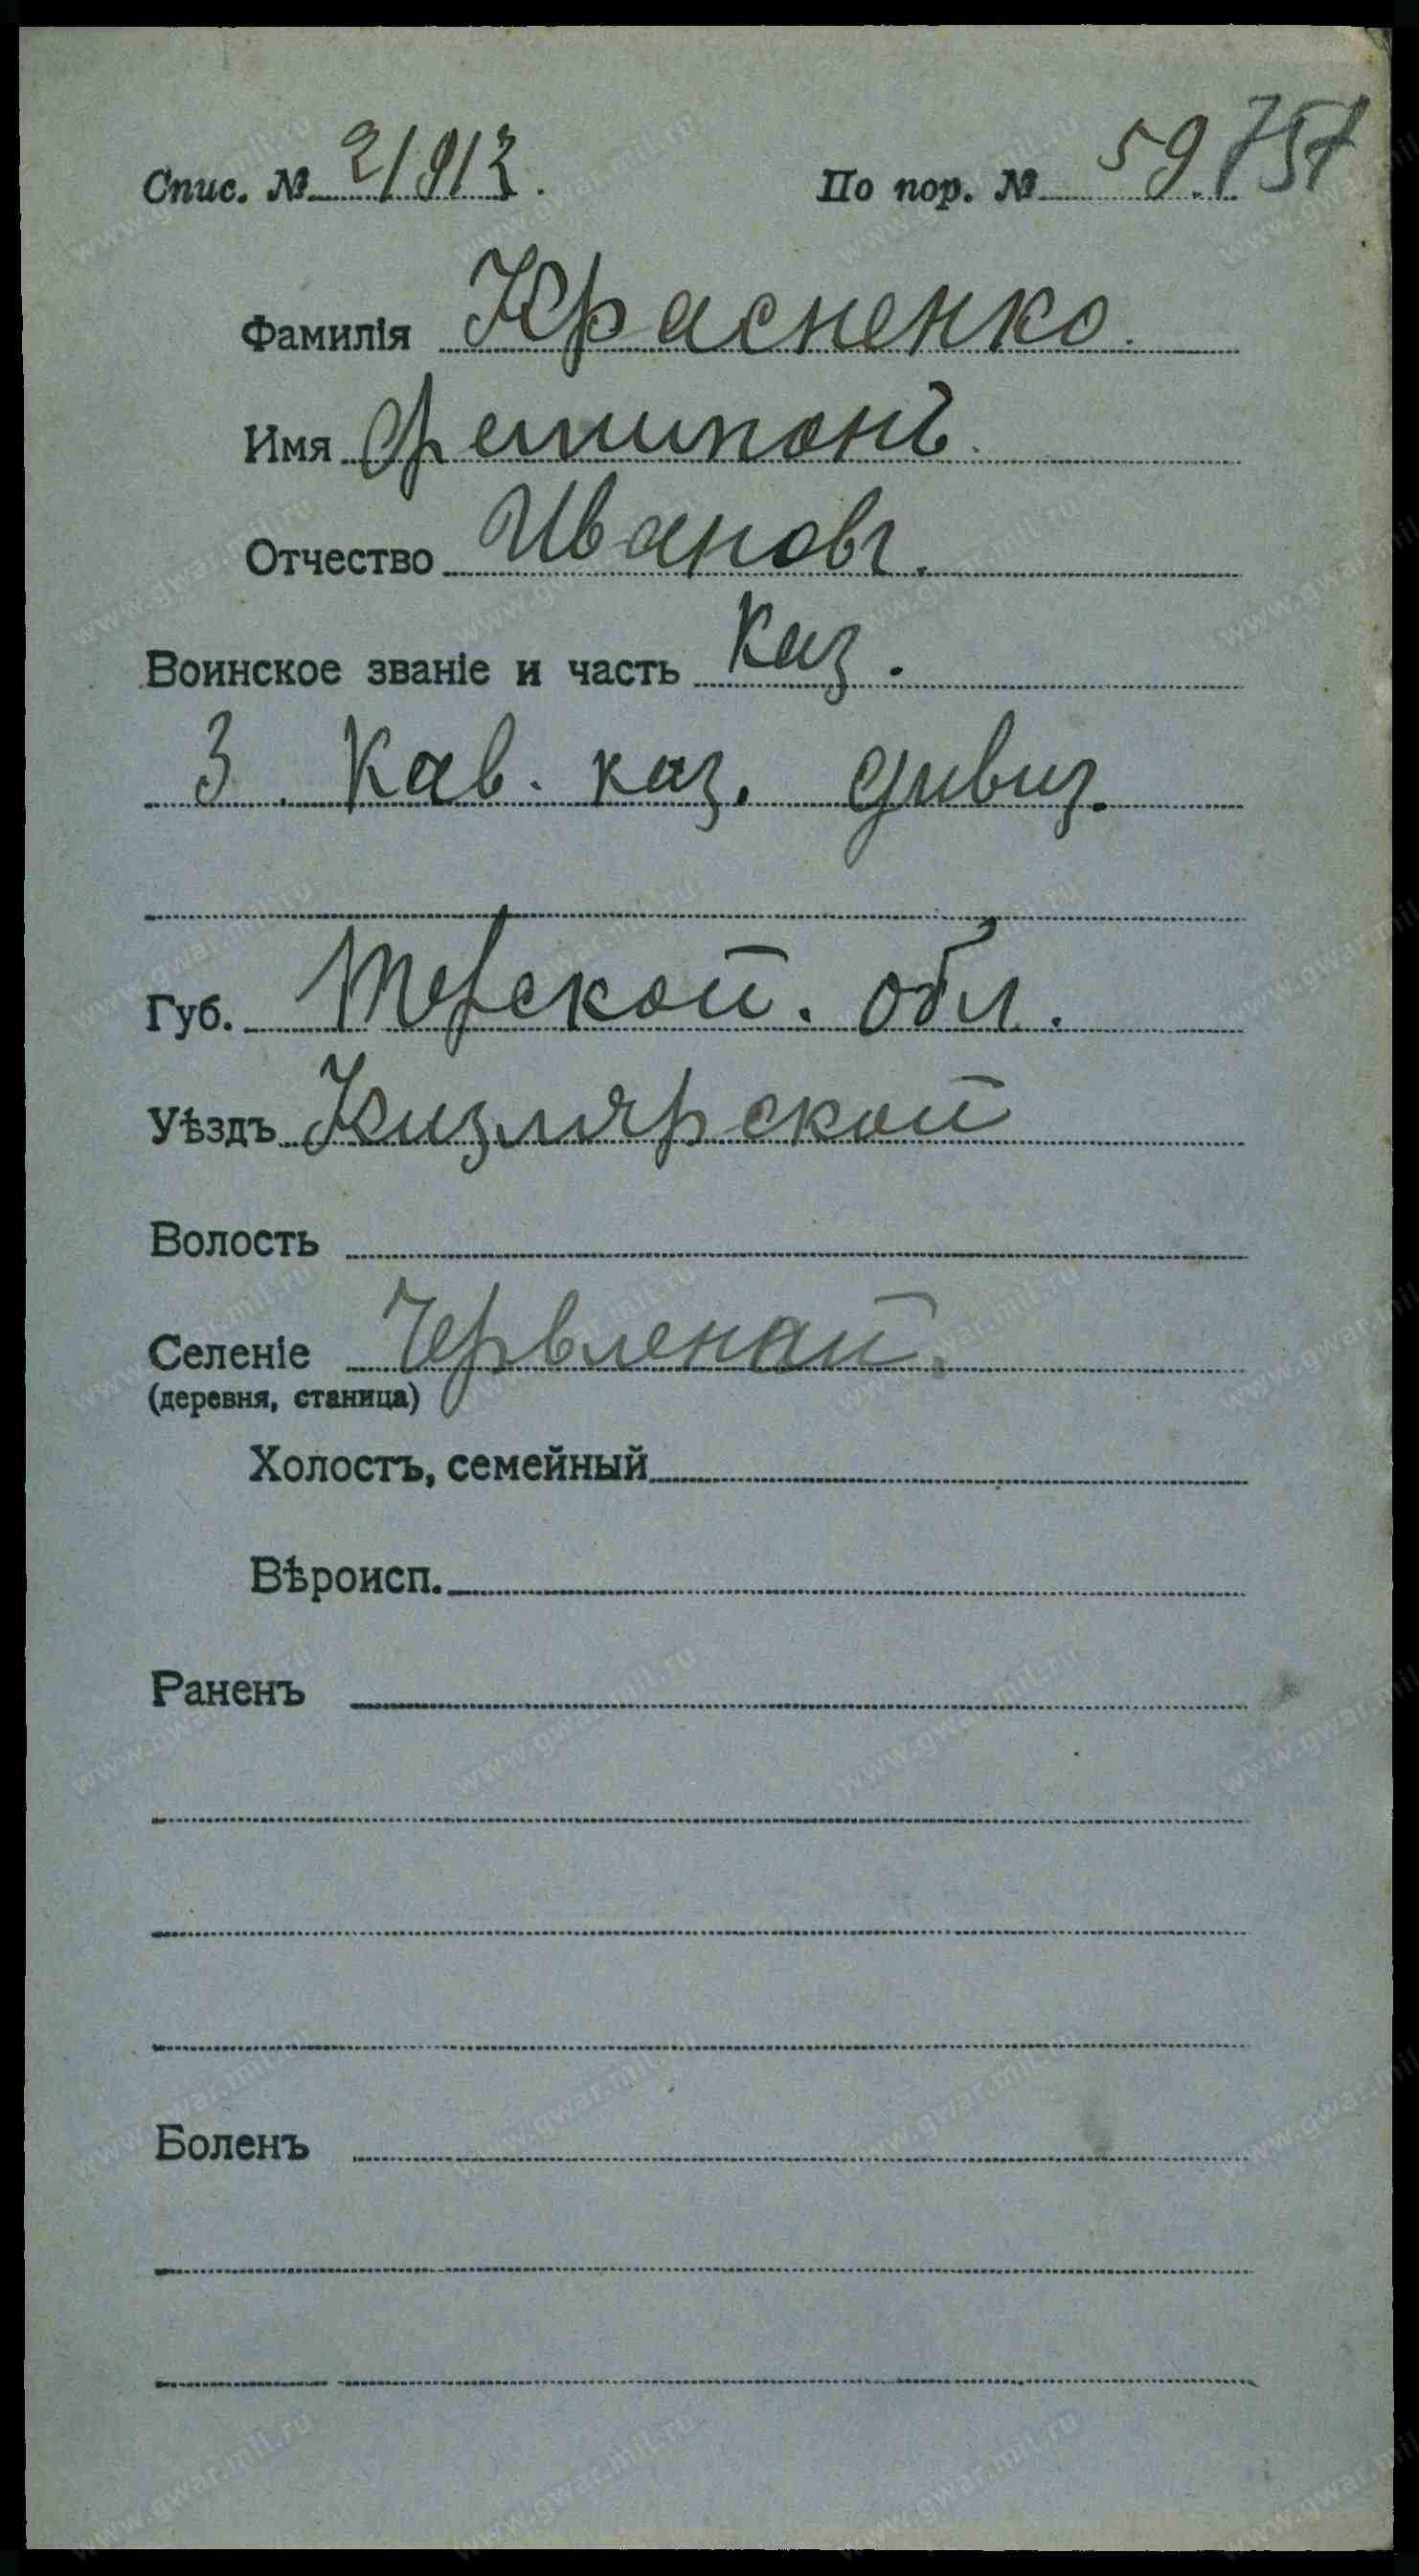 Спис. № 21913.
По пор. № 59.757
Фамилія Красненко.
Имя Фетипонъ
Отчество Ивановъ.
Воинское званіе и часть Каз.
3 Кав. каз. дивиз.
Губ. Терской. обл.
Уѣздъ Кизлярской
Волость
Селеніе Червленай.
(деревня, станица)
Холостъ, семейный
Вѣроисп.
Раненъ
Боленъ